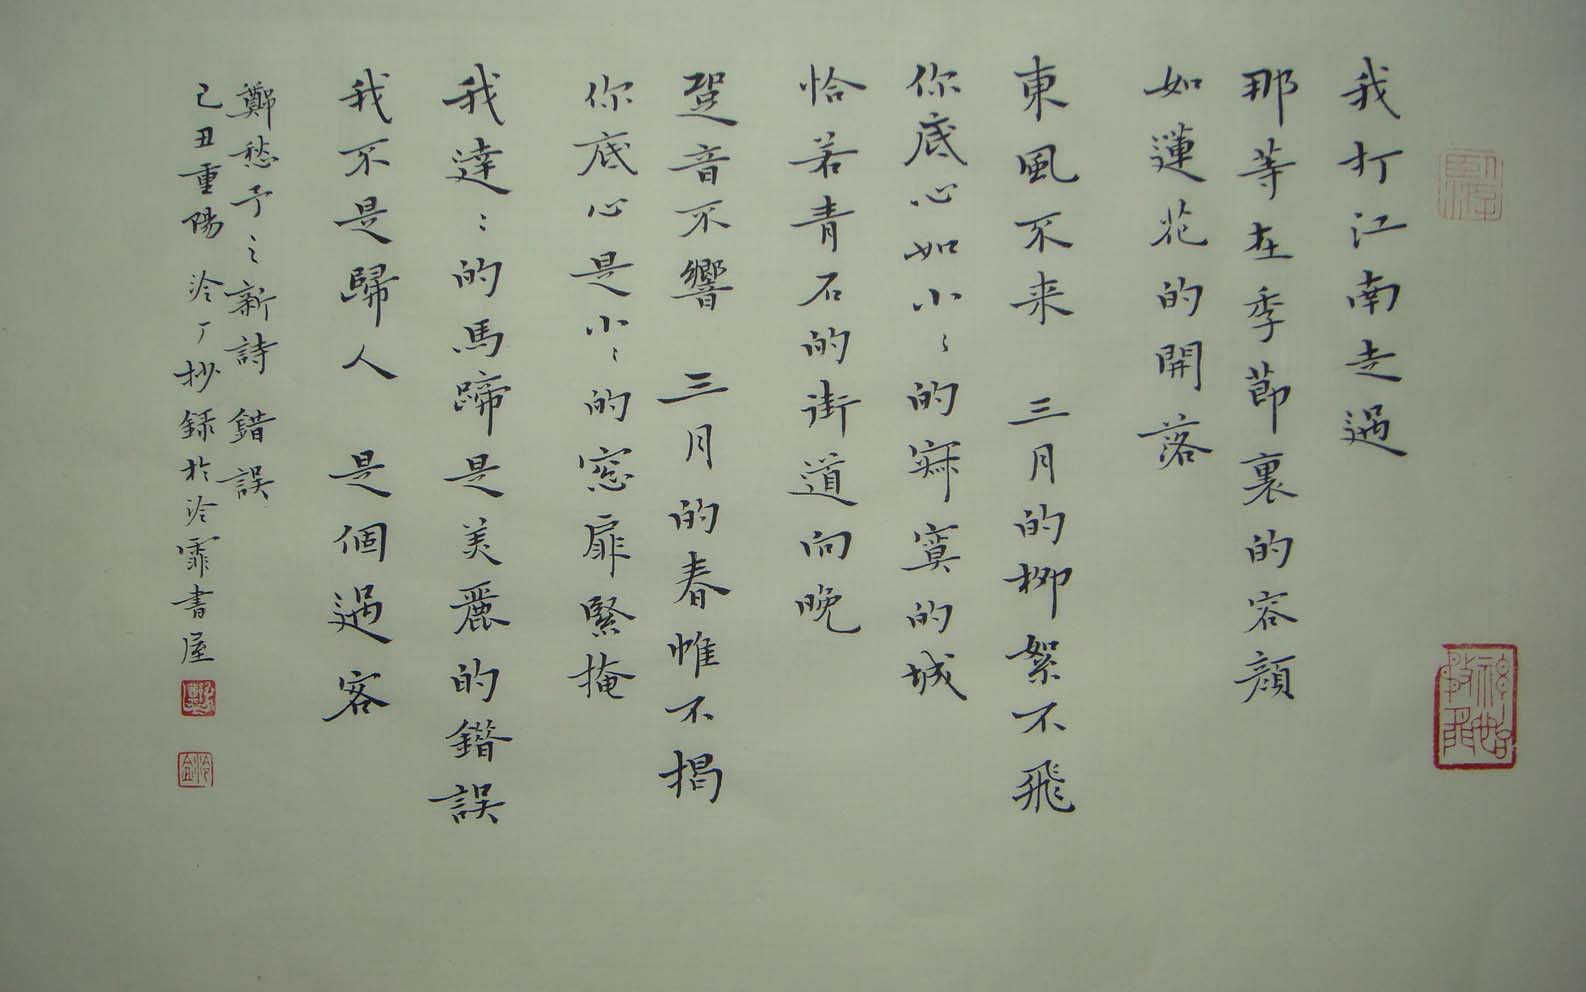 我打江南走過
那等在季節裏的容顔
如蓮花的開落
東風不来 三月的柳絮不飛
你底心如小〻的寂寞的城
恰若青石的街道向晚
跫音不響 三月的春帷不揭
你底心是小〻的窓扉緊掩
我達〻的馬蹄是美麗的錯誤
我不是歸人 是個過客
鄭愁予之新詩 錯誤
己丑重陽 泠丁抄録於泠霏書屋